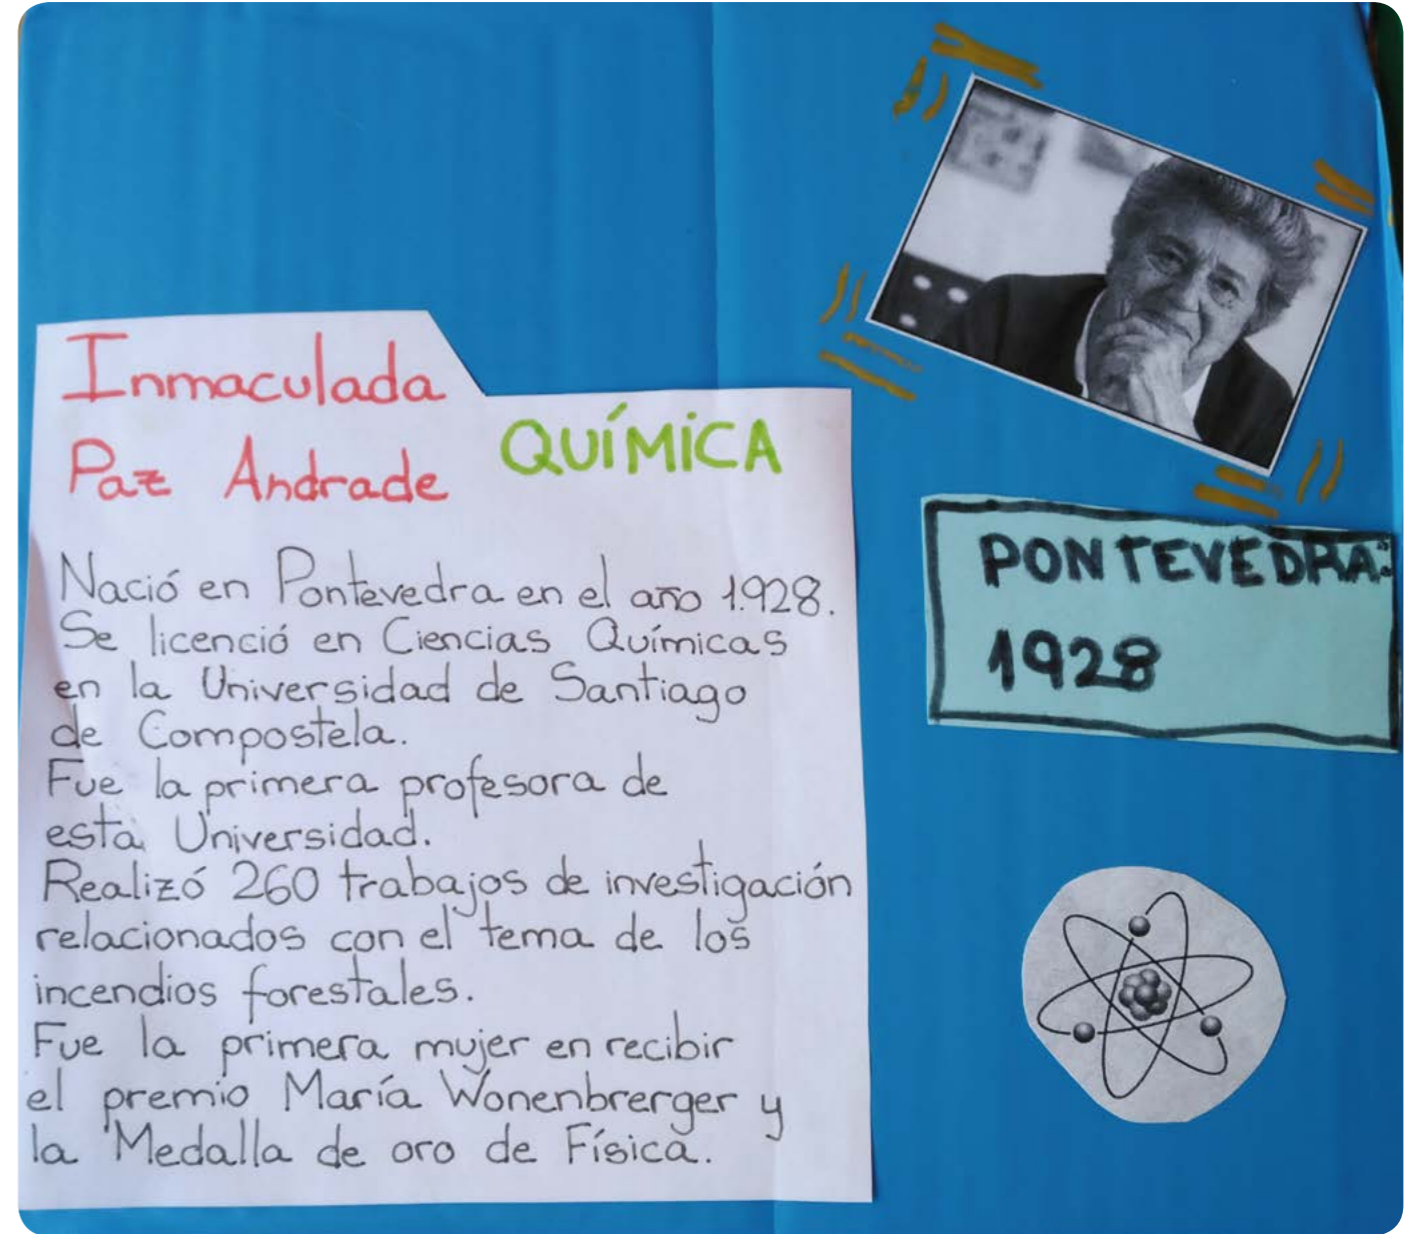 Inmaculada
Paz Andrade
QUÍMICA
Nació en Pontevedra en el año 1.928.
Se licenció en Ciencias Químicas
en la Universidad de Santiago
de Compostela.
Fue la primera profesora de
esta Universidad.
Realizó 260 trabajos de investigación
relacionados con el tema de los
incendios forestales.
Fue la primera mujer en recibir
el premio María Wonenbrerger y
la Medalla de oro de Física.
PONTEVEDRA:
1928